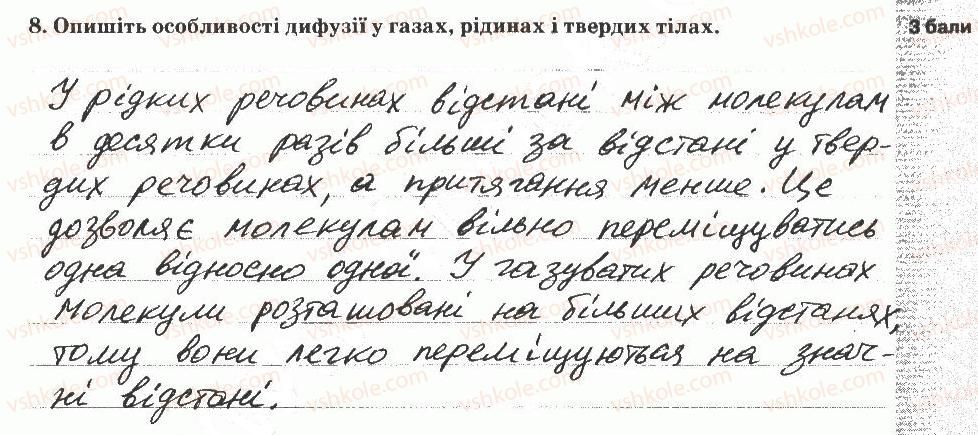 8. Опишіть особливості дифузії у газах, рідинах і твердих тілах. 3 бали
У рідких речовинах відстані між молекулам
в десятки разів більші за відстані у твер-
дих речовинах, а притягання менше. Це
дозволяє молекулам вільно переміщуватись
одна відносно одної. У газуватих речовинах
молекули розташовані на більших відстанях,
тому вони легко переміщуються на знач-
ні відстані.